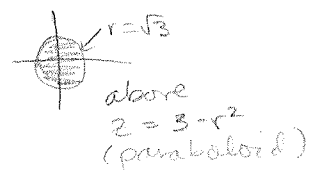 r=√3
above
z = 3 - r²
(paraboloid)